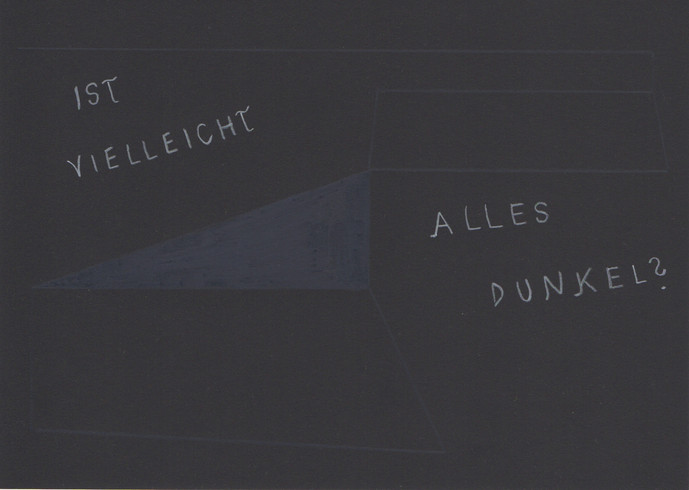 IST
VIELLEICHT
ALLES
DUNKEL?